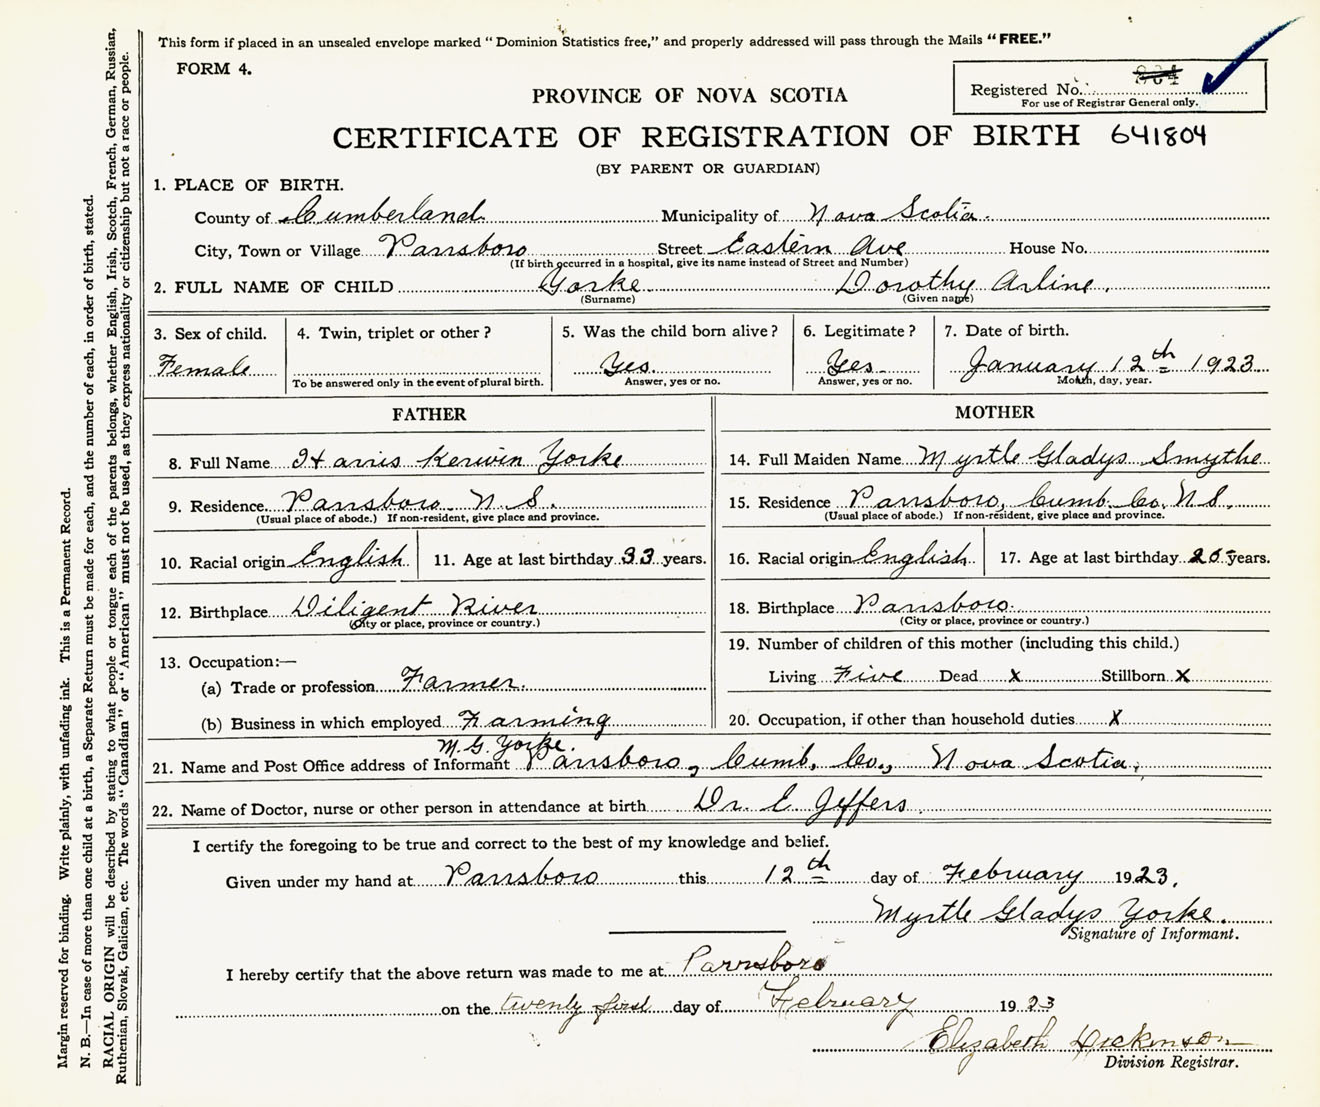 This form if placed in an unsealed envelope marked "Dominion Statistics free," and properly addressed will pass through the Mails "FREE."
FORM 4.
Registered No.
For use of Registrar General only.
PROVINCE OF NOVA SCOTIA
CERTIFICATE OF REGISTRATION OF BIRTH 641804
(BY PARENT OR GUARDIAN)
1. PLACE OF BIRTH.
County of Cumberland Municipality of Nova Scotia.
City, Town or Village Parrsboro Street Eastern Ave House No.
(If birth occurred in a hospital, give its name instead of Street and Number)
2. FULL NAME OF CHILD Yorke Dorothy Arline.
(Surname) (Given name)
3. Sex of child. 4. Twin, triplet or other? 5. Was the child born alive? 6. Legitimate? 7. Date of birth.
Female Yes. Yes January 12th 1923
To be answered only in the event of plural birth. Answer, yes or no. Answer, yes or no. Month, day, year.
FATHER MOTHER
8. Full Name Harris Kerwin Yorke 14. Full Maiden Name Myrtle Gladys Smythe
9. Residence Parrsboro N.S. 15. Residence Parrsboro, Cumb. Co. N.S.
(Usual place of abode.) If non-resident, give place and province. (Usual place of abode.) If non-resident, give place and province.
10. Racial origin English 11. Age at last birthday 33 years. 16. Racial origin English 17. Age at last birthday years.
12. Birthplace Diligent River 18. Birthplace Parrsboro.
(City or place, province or country.) (City or place, province or country.)
19. Number of children of this mother (including this child.)
13. Occupation:—
(a) Trade or profession Farmer. Living Five Dead X Stillborn X
(b) Business in which employed Farming 20. Occupation, if other than household duties X
M. G. Yorke.
21. Name and Post Office address of Informant Parrsboro, Cumb. Co., Nova Scotia,
22. Name of Doctor, nurse or other person in attendance at birth Dr. E Jeffers.
I certify the foregoing to be true and correct to the best of my knowledge and belief.
Given under my hand at Parrsboro this 12th day of February 1923.
Myrtle Gladys Yorke.
Signature of Informant.
I hereby certify that the above return was made to me at Parrsboro
on the twenty first day of February 1923
Elizabeth Dickinson
Division Registrar.
Margin reserved for binding. Write plainly, with unfading ink. This is a Permanent Record.
N. B.—In case of more than one child at a birth, a Separate Return must be made for each, and the number of each, in order of birth, stated.
RACIAL ORIGIN will be described by stating to what people or tongue each of the parents belongs, whether English, Irish, Scotch, French, German, Russian,
Ruthenian, Slovak, Galician, etc. The words "Canadian" or "American" must not be used, as they express nationality or citizenship but not a race or people.